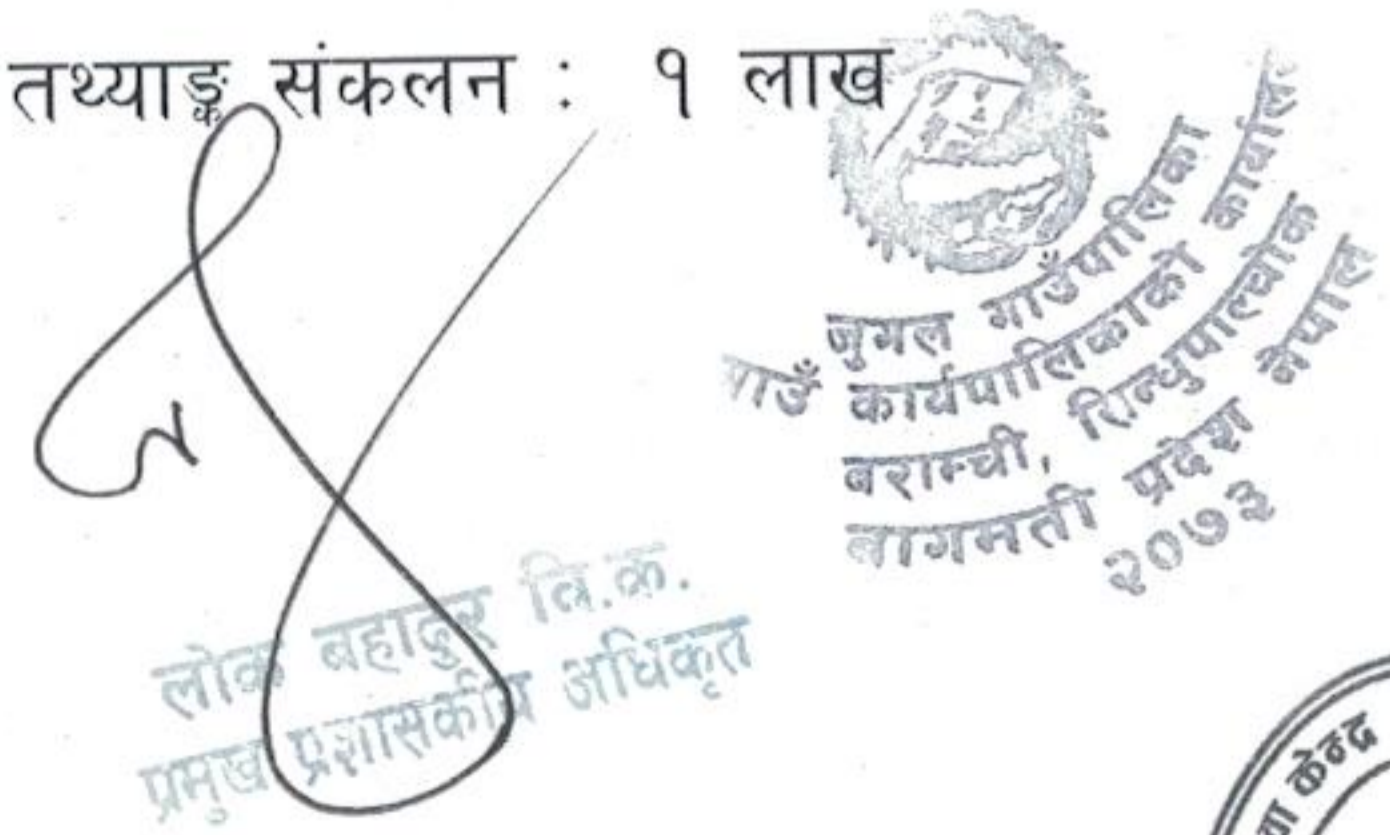 तथ्याङ्क संकलन : १ लाख
जुगल गाउँपालिका
गाउँ कार्यपालिकाको
बराम्ची, सिन्धुपाल्चोक
बागमती प्रदेश नेपाल
२०७३
लोक बहादुर वि.क.
प्रमुख प्रशासकीय अधिकृत
केन्द्र